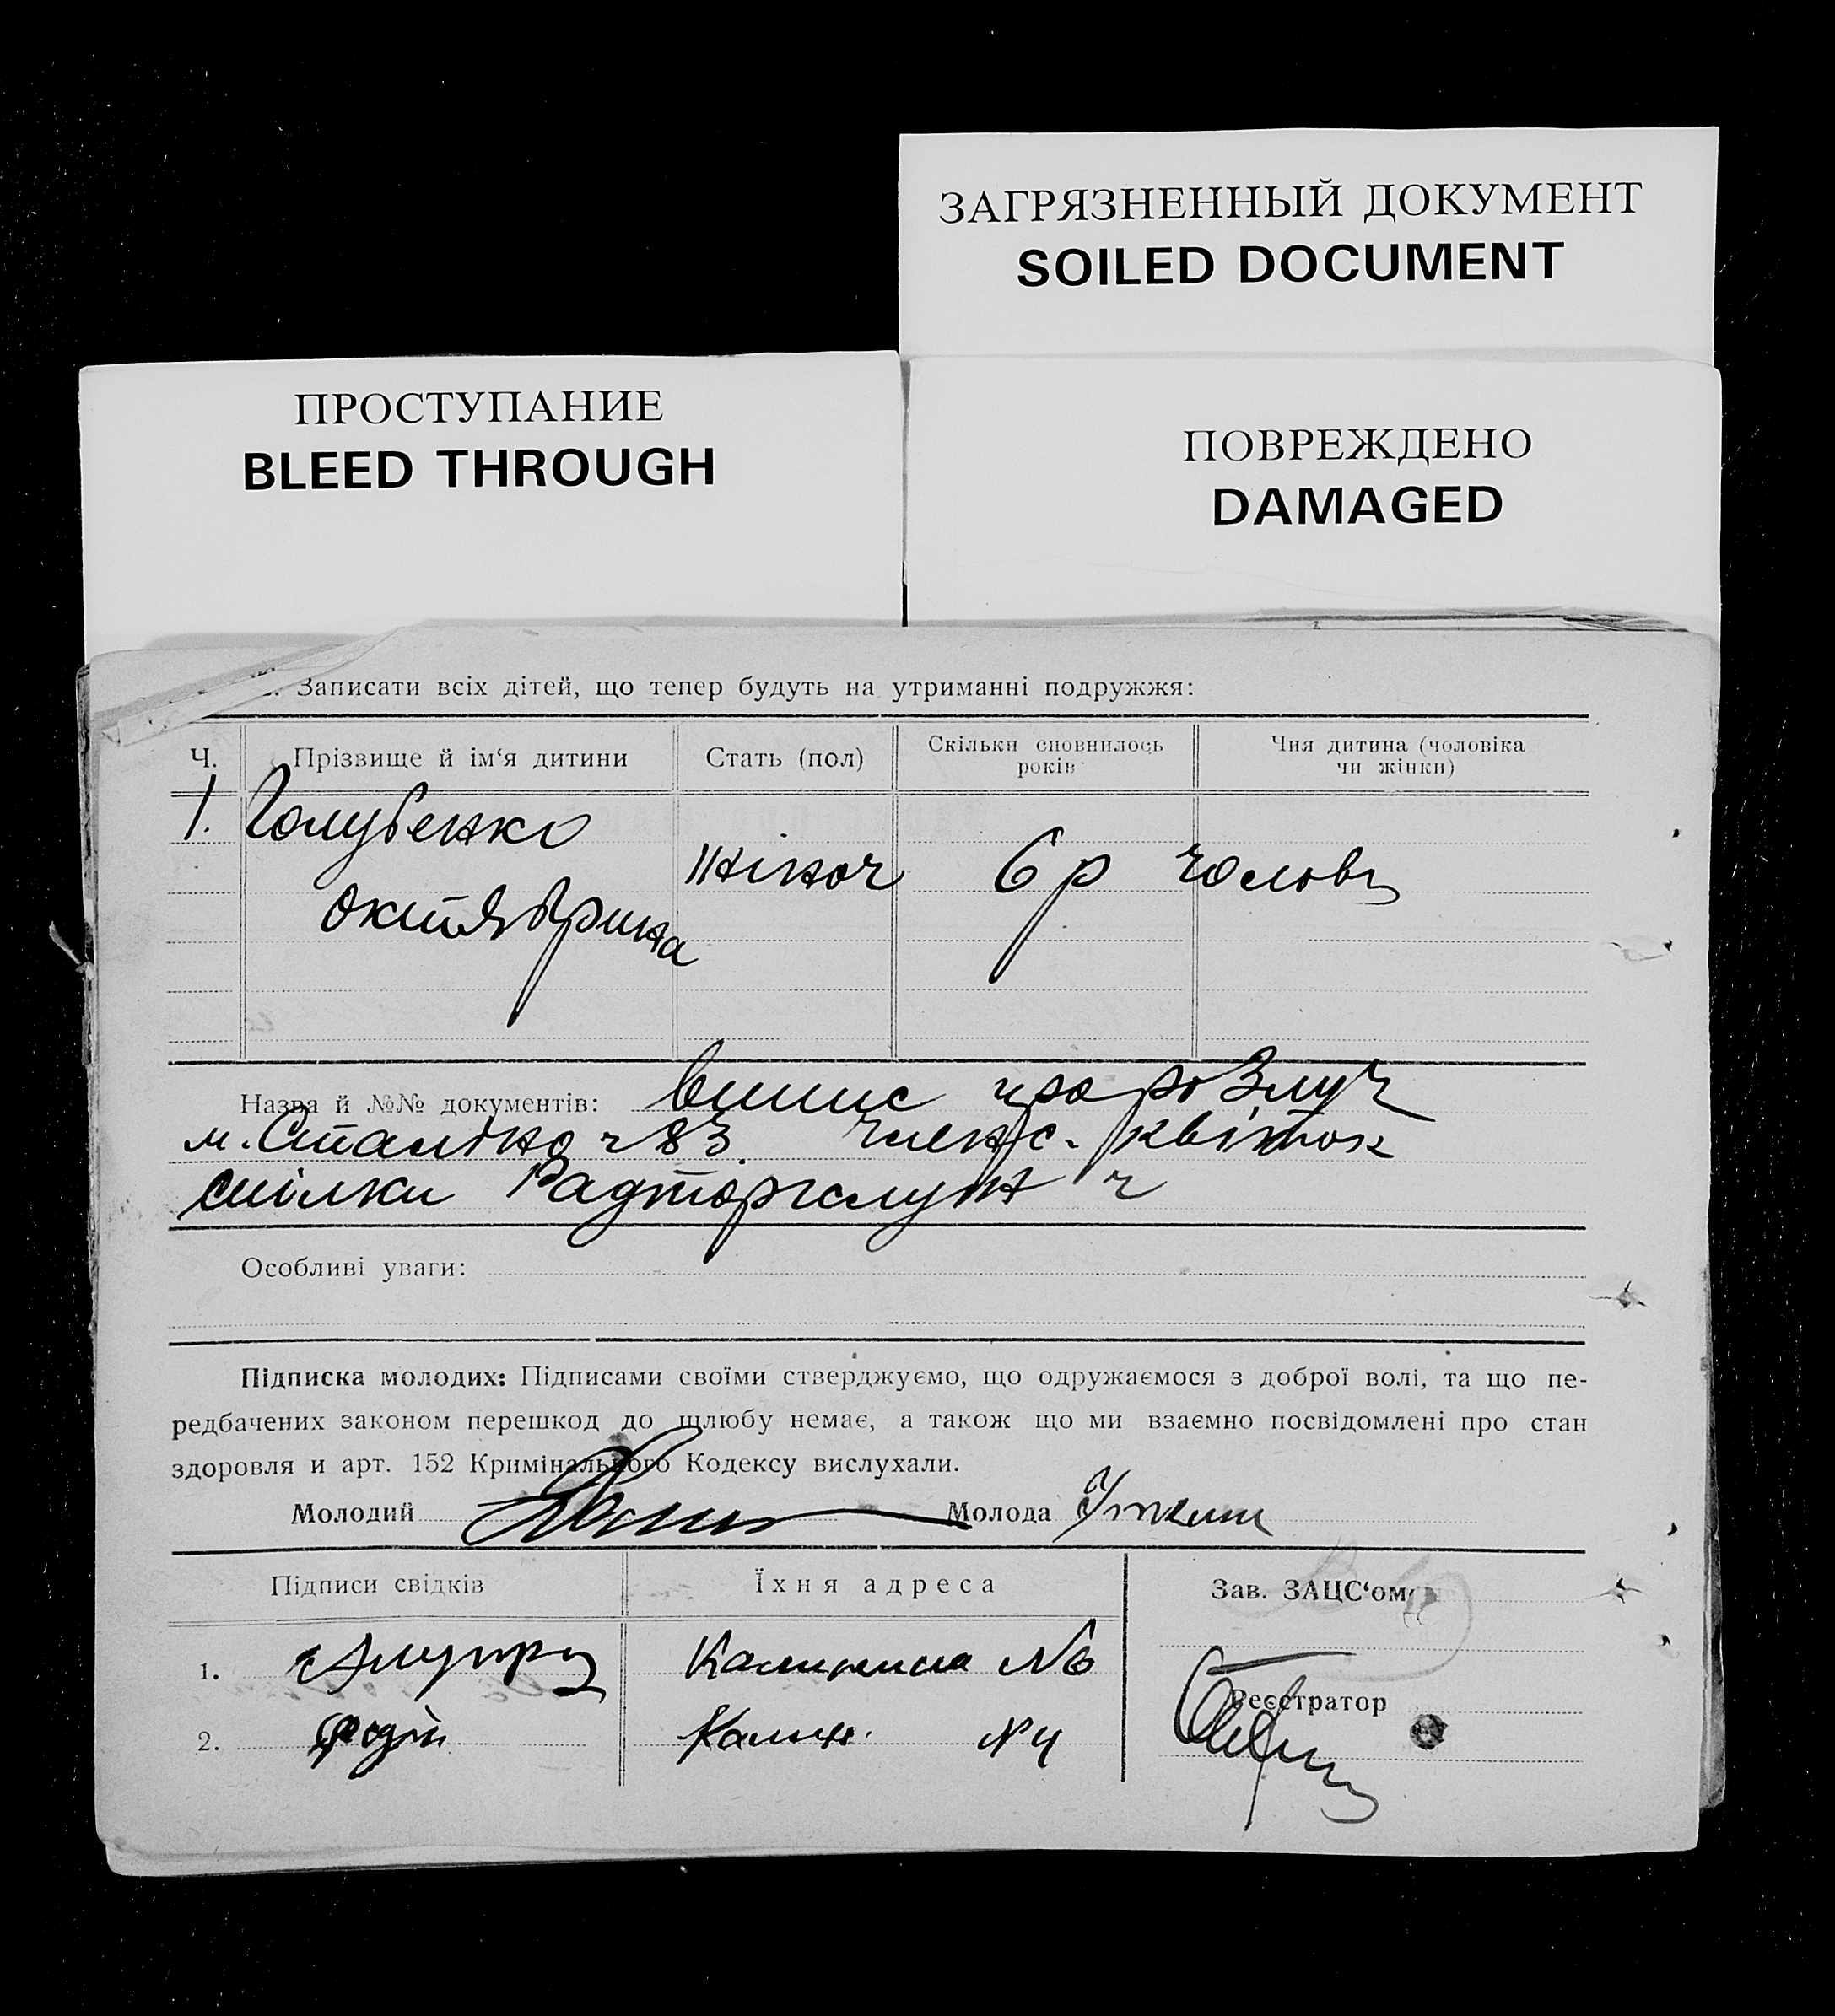 ЗАГРЯЗНЕННЫЙ ДОКУМЕНТ
SOILED DOCUMENT
ПРОСТУПАНИЕ
BLEED THROUGH
ПОВРЕЖДЕНО
DAMAGED
Записати всіх дітей, що тепер будуть на утриманні подружжя:
Ч. Прізвище й ім‘я дитини Стать (пол) Скільки сповнилось років Чия дитина (чоловіка чи жінки)
1. Голубенко
жіноч 6 р чолов
Октябрина
Назва й №№ документів: випис про розлуч
м. Сталіно ч 83. членс. квіток
спілки Радторгслуж ч
Особливі уваги:
Підписка молодих: Підписами своїми стверджуємо, що одружаємося з доброї волі, та що пе-
редбачених законом перешкод до шлюбу немає, а також що ми взаємно посвідомлені про стан
здоровля и арт. 152 Кримінального Кодексу вислухали.
Молодий Молода
Підписи свідків Їхня адреса Зав. ЗАЦС‘ом
1. Калинина №6
Реєстратор
2. Калин. № 4